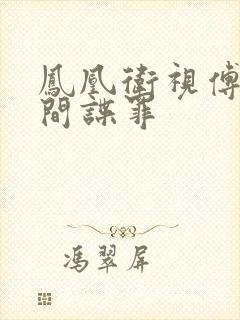 鳳凰衛視傅
間諜罪
馮翠屏